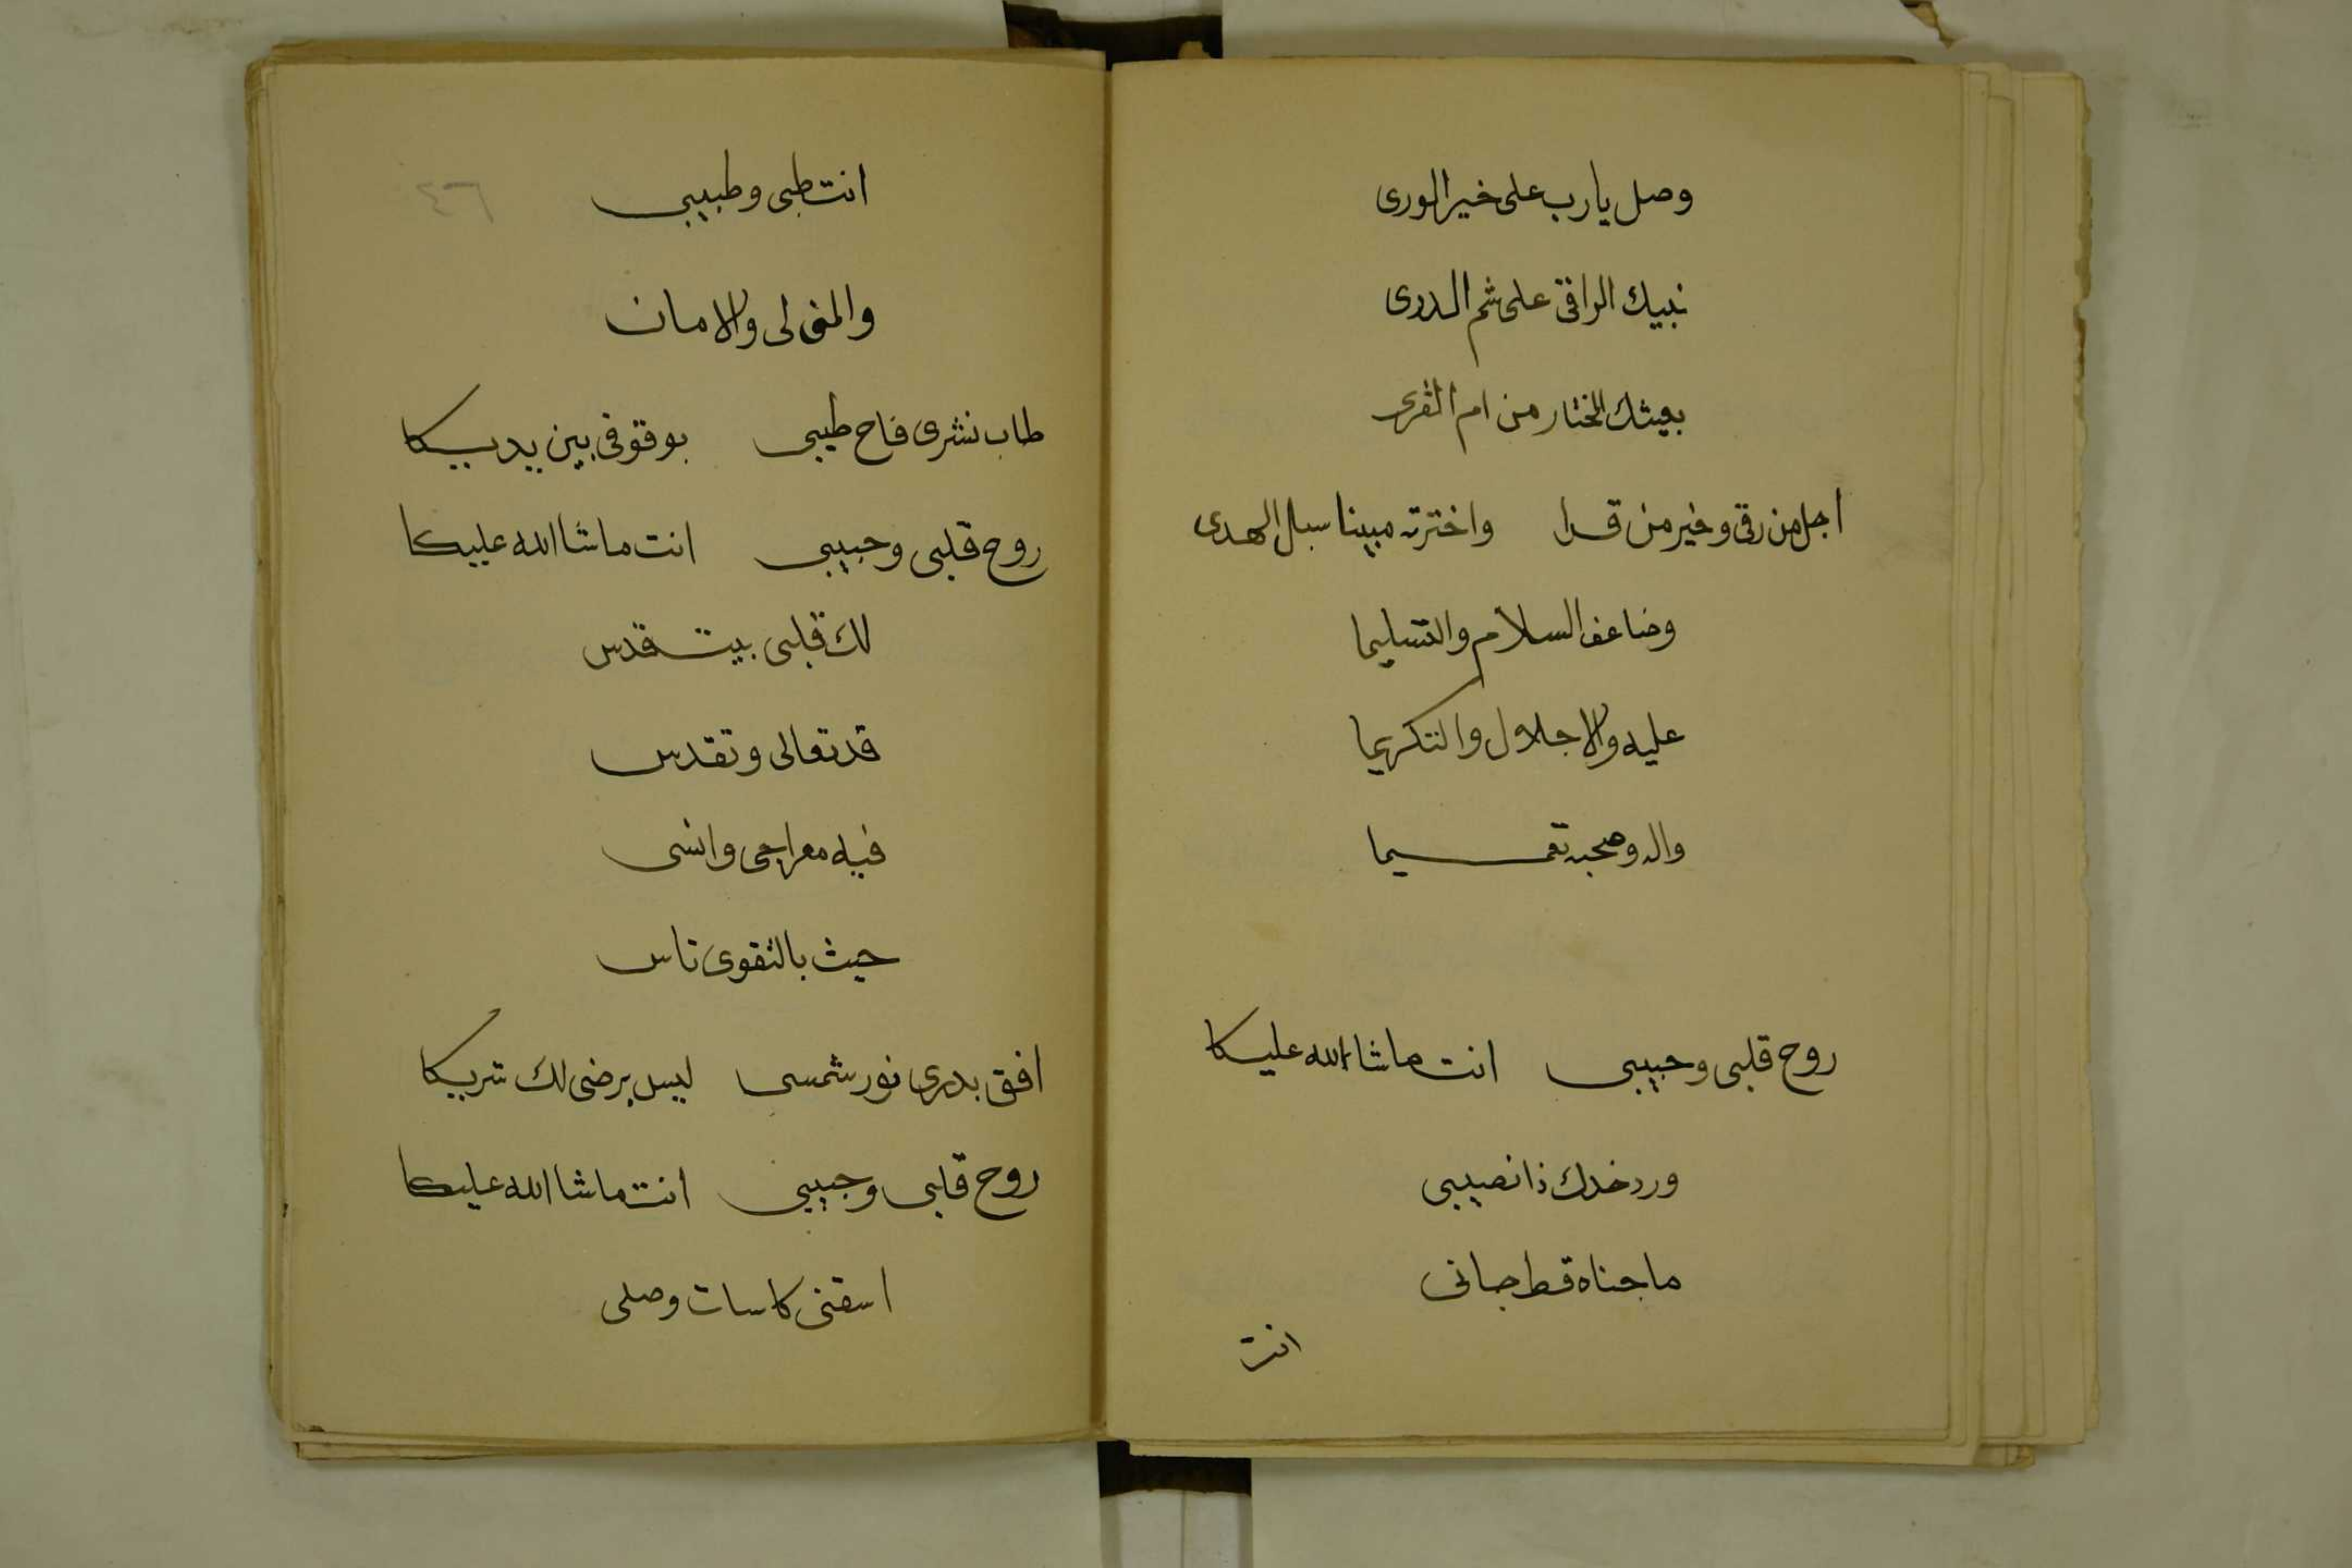 وصل يارب على خير الورى
نبيك الراقى على شم الدرى
بعيثك المختار من ام القرى
اجل من رقى وخير من قرا واخترته مبينا سبل الهدى
وضاعف السلام والتسليما
عليه والاجلال والتكريما
واله وصحبه تعميما
روح قلبى وحبيبى انت ماشاالله عليكا
ورد خدك ذا نصيبى
ما جناه قط جانى
انت
٤٦
انت طبى وطبيبى
والمنى لى والامان
طاب نشرى فاح طيبى بوقوفى بين يديكا
روح قلبى وحبيبى انت ماشاالله عليكا
لك قلبى بيت قدس
قد تعالى وتقدس
فيه معراجى وانسى
حيث بالتقوى تاسس
افق بدرى نور شمسى ليس يرضى لك شريكا
روح قلبى وحبيبى انت ماشاالله عليكا
اسقنى كاسات وصلى